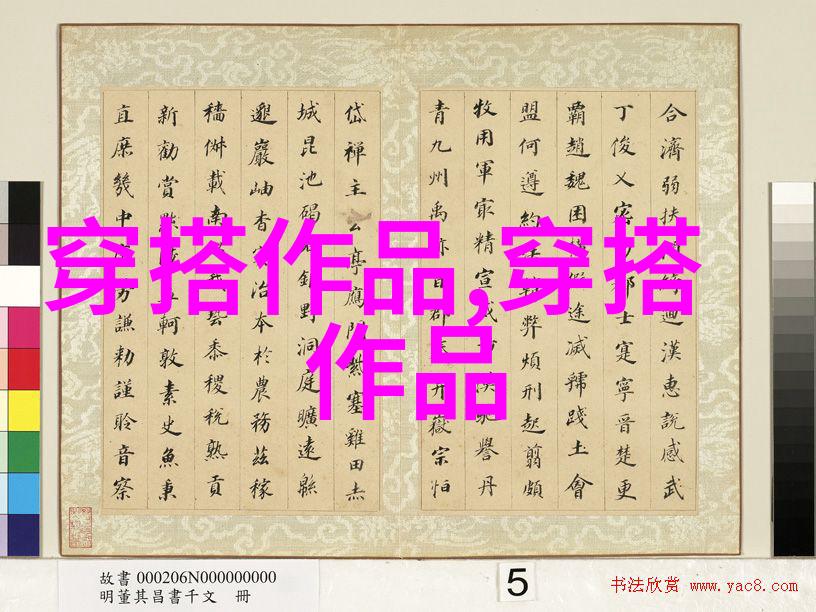 合濟弱扶迴漢惠說感武
丁俊乂密士寔寧晉楚更
霸趙魏困途滅虢踐土會
盟何遵約弊煩刑起翦頗
牧用軍最精宣威馳譽丹
青九州禹百郡嶽宗恒
岱禪主云亭鴈門紫塞雞田赤
城昆池碣野洞庭曠遠緜
邈巖岫杳治本於農務茲稼
穡俶載南藝黍稷稅熟貢
新勸賞軻敦素史魚秉
直庶幾中勞謙勑謹聆音察
穿搭作品,穿搭
作品
故書 000206N000000000
明董其昌書千文 冊
5
书法欣赏 www.yac8.com